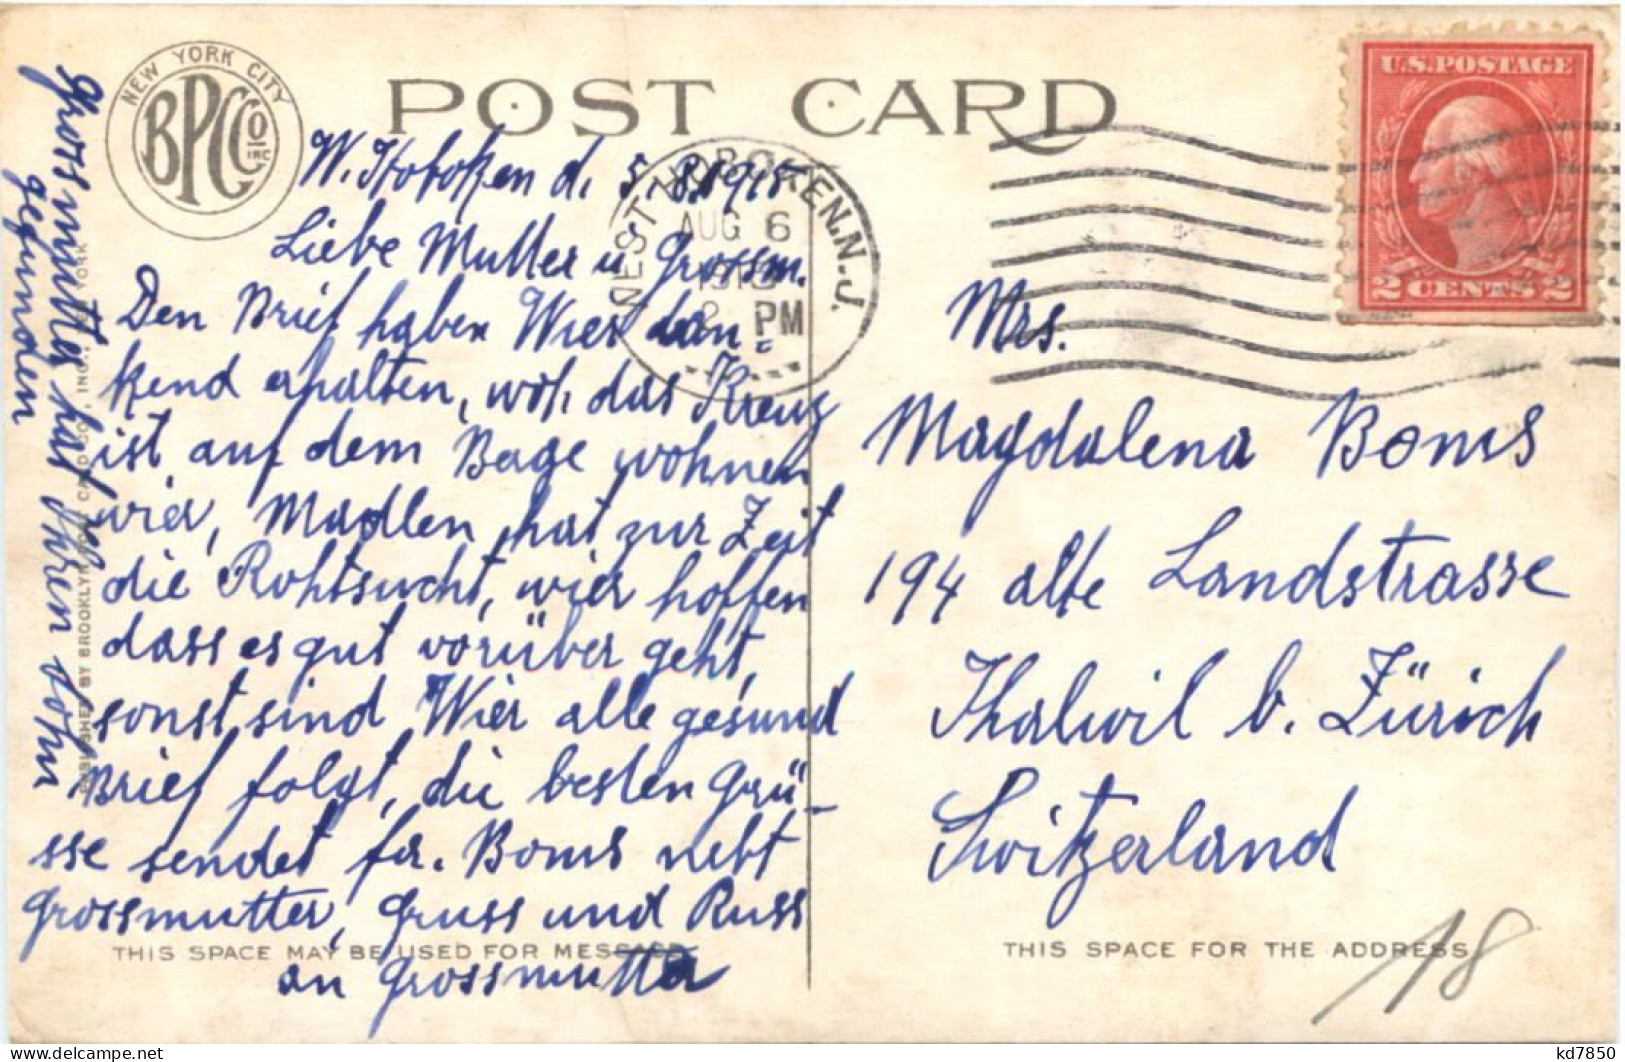 NEW YORK CITY
BPCCo
INC
POST CARD
U.S.POSTAGE
2 CENTS 2
WEST HOBOKEN, N.J.
AUG 6
PM
W. Hoboken d. 5.
Liebe Mutter u Grossm.
Den Brief haben Wier dan
kend erhalten, wo das Kreuz
ist auf dem Berge wohnen
wier, Madlen hat zur Zeit
die Rohtsucht, wier hoffen
dass es gut vorüber geht,
sonst sind Wier alle gesund
Brief folgt, die besten Grü-
sse sendet fa. Boms nebt
Grossmutter, Gruss und Kuss
an Grossmutter
Grossmutter hat ihren sohn
gefunden
Mrs.
Magdalena Boms
194 alte Landstrasse
Thalwil b. Zürich
Switzerland
THIS SPACE MAY BE USED FOR MESSAGE
THIS SPACE FOR THE ADDRESS
18
kd7850